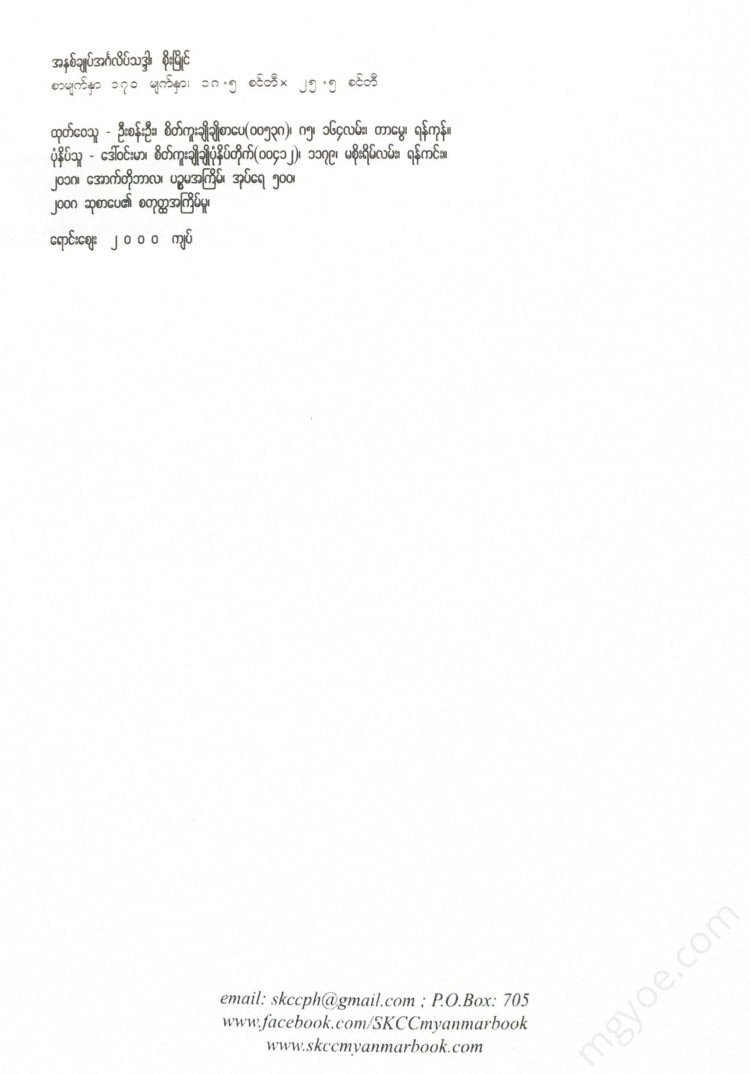 အနစ်ချုပ်အင်္ဂလိပ်သဒ္ဒါ၊ စိုးမြိုင်
စာမျက်နှာ ၁၇၀ မျက်နှာ၊ ၁၈.၅ စင်တီ× ၂၅.၅ စင်တီ
ထုတ်ဝေသူ - ဦးစန်းဦး၊ စိတ်ကူးချိုချိုစာပေ(၀၀၅၃၈)၊ ၈၅၊ ၁၆၄လမ်း၊ တာမွေ၊ ရန်ကုန်။
ပုံနှိပ်သူ - ဒေါ်ဝင်းမာ၊ စိတ်ကူးချိုချိုပုံနှိပ်တိုက်(၀၀၄၁၂)၊ ၁၁၇၉၊ မစိုးရိမ်လမ်း၊ ရန်ကင်း။
၂၀၁၈၊ အောက်တိုဘာလ၊ ပဉ္စမအကြိမ်၊ အုပ်ရေ ၅၀၀၊
၂၀၀၈ ဆုစာပေ၏ စတုတ္ထအကြိမ်မူ၊
ရောင်းဈေး ၂၀၀၀ ကျပ်
email: skccph@gmail.com ; P.O.Box: 705
www.facebook.com/SKCCmyanmarbook
www.skccmyanmarbook.com
mgyoe.com